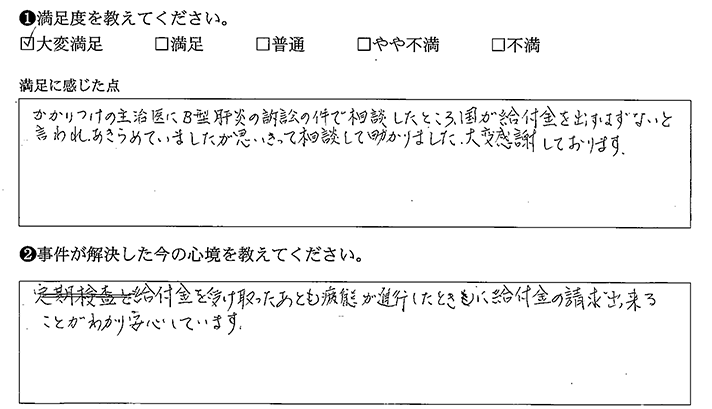 ❶満足度を教えてください。
☑大変満足 □満足 □普通 □やや不満 □不満
満足に感じた点
かかりつけの主治医にB型肝炎の訴訟の件で相談したところ、国が給付金を出すはずないと
言われ、あきらめていましたが思いきって相談して助かりました。大変感謝しております。
❷事件が解決した今の心境を教えてください。
定期検査と給付金を受け取ったあとも病態が進行したときに給付金の請求出来る
ことがわかり安心しています。